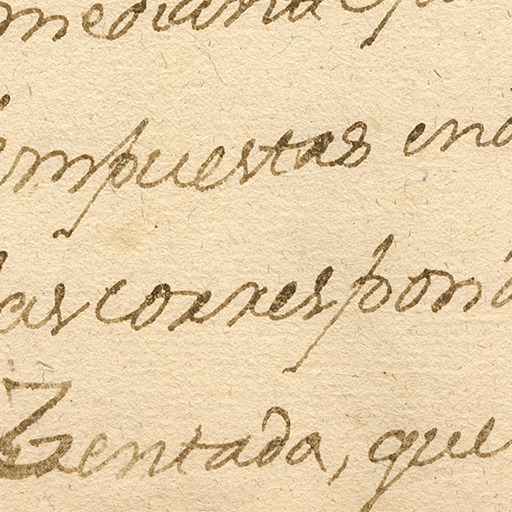 mediana
impuestas en
las correspon
Zentada, que